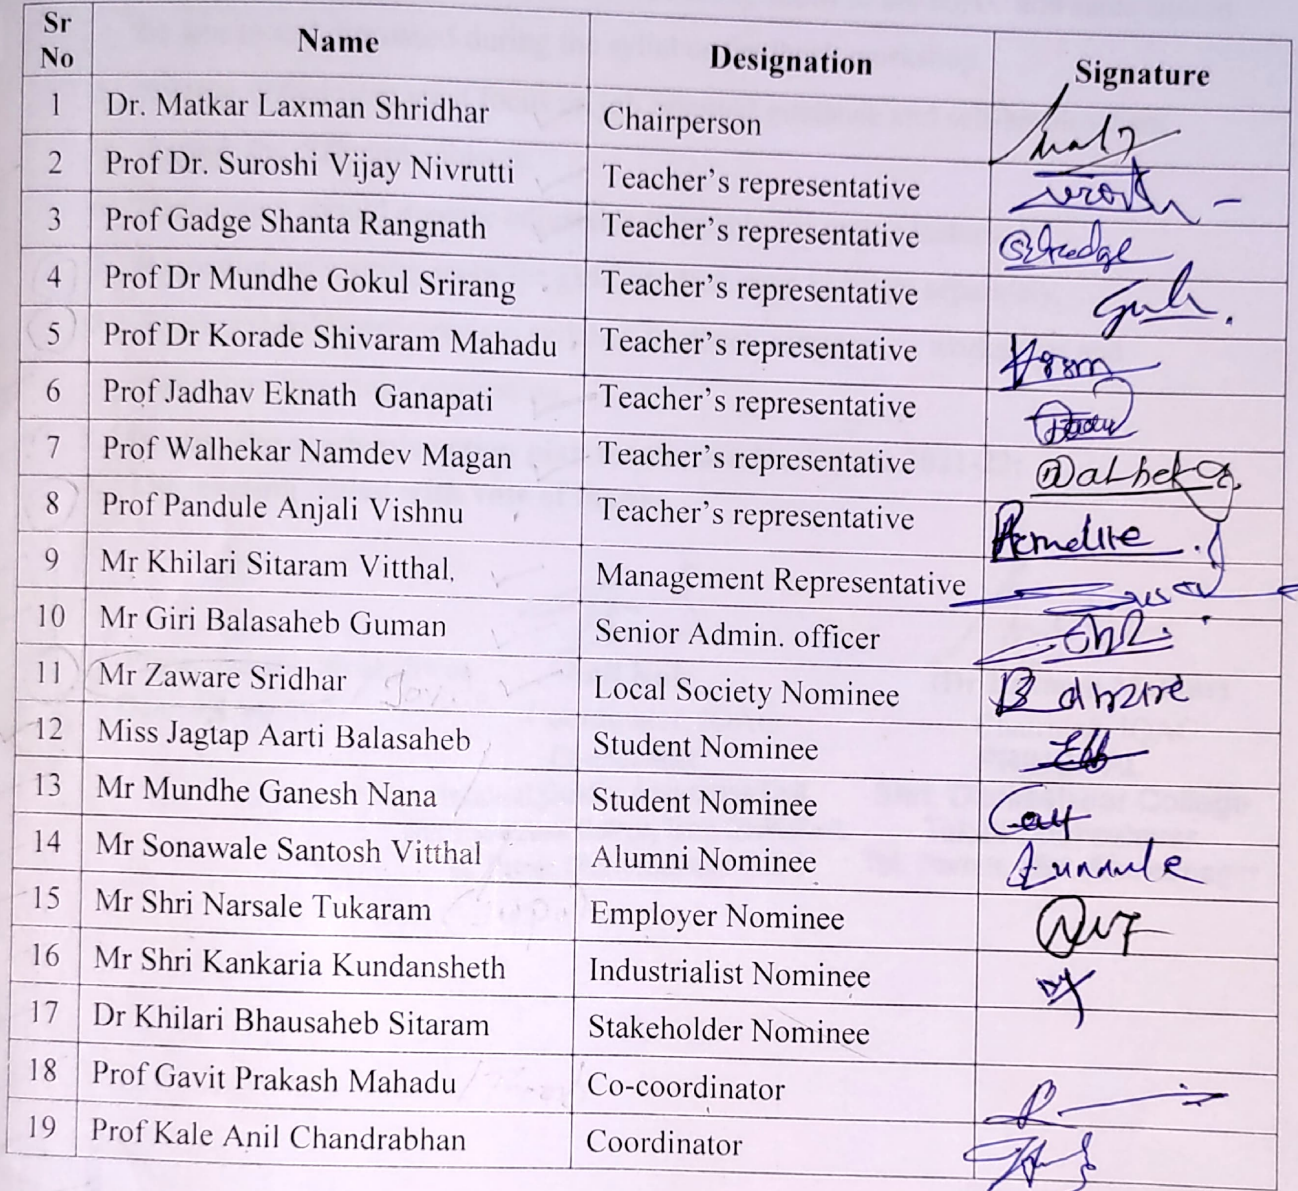 Sr No Name Designation Signature
1 Dr. Matkar Laxman Shridhar Chairperson
2 Prof Dr. Suroshi Vijay Nivrutti Teacher's representative
3 Prof Gadge Shanta Rangnath Teacher's representative
4 Prof Dr Mundhe Gokul Srirang Teacher's representative
5 Prof Dr Korade Shivaram Mahadu Teacher's representative
6 Prof Jadhav Eknath Ganapati Teacher's representative
7 Prof Walhekar Namdev Magan Teacher's representative
8 Prof Pandule Anjali Vishnu Teacher's representative
9 Mr Khilari Sitaram Vitthal. Management Representative
10 Mr Giri Balasaheb Guman Senior Admin. officer
11 Mr Zaware Sridhar Local Society Nominee
12 Miss Jagtap Aarti Balasaheb Student Nominee
13 Mr Mundhe Ganesh Nana Student Nominee
14 Mr Sonawale Santosh Vitthal Alumni Nominee
15 Mr Shri Narsale Tukaram Employer Nominee
16 Mr Shri Kankaria Kundansheth Industrialist Nominee
17 Dr Khilari Bhausaheb Sitaram Stakeholder Nominee
18 Prof Gavit Prakash Mahadu Co-coordinator
19 Prof Kale Anil Chandrabhan Coordinator